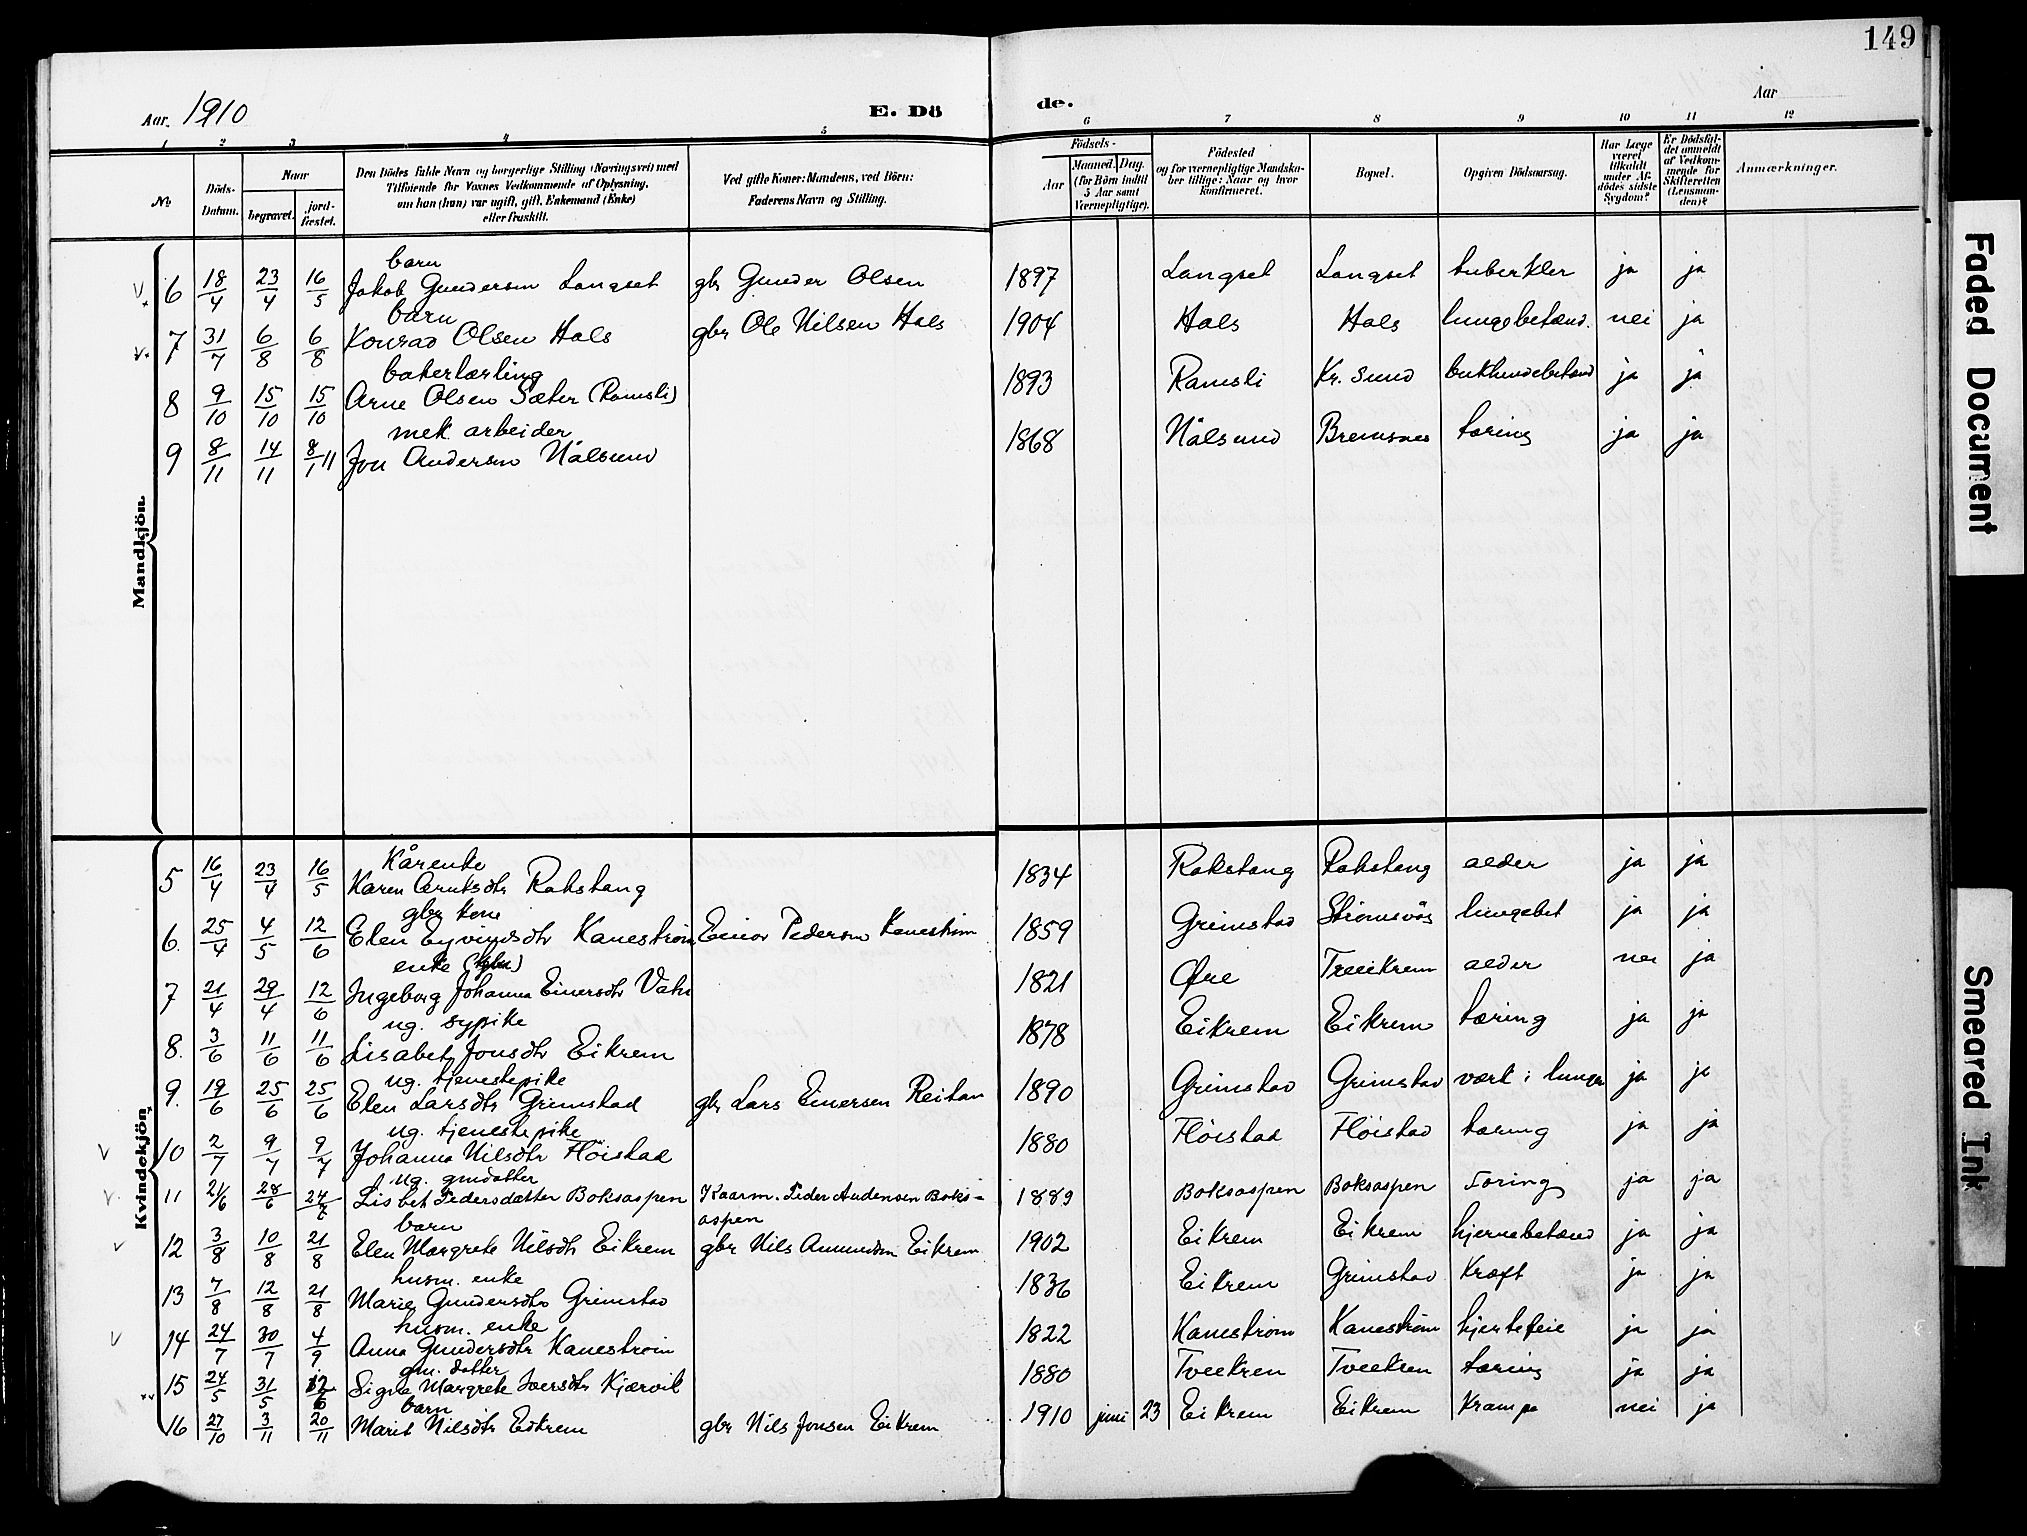 149
Aar. 1910 E. Dö de. Aar
1 2 3 4 5 6 7 8 9 10 11 12
No
Döds-Datum.
Naar
begravet. jord-fæstet.
Den Dödes fulde Navn og borgerlige Stilling (Næringsvei) med
Tilföiende for Voxnes Vedkommende af Oplysning,
om han (hun) var ugift, gift, Enkemand (Enke)
eller fraskilt.
Ved gifte Koner: Mandens, ved Börn:
Faderens Navn og Stilling.
Födsels-
Aar Maaned. Dag.
(for Börn indtil
5 Aar samt
Værnepligtige).
Födested
og for værnepligtige Mandska-
ber tillige: Naar og hvor
konfirmeret.
Bopæl.
Opgiven Dödsaarsag.
Har Læge
været
tilkaldt
under Af-
dödes sidste
Sygdom?
Er Dödsfal-
det anmeldt
af Vedkom-
mende for
Skifteretten
(Lensman-
den)?
Anmærkninger.
Mandkjön.
barn
6 18/4 23/4 16/5 Jakob Gundersen Langset gbr Gunder Olsen 1897 Langset Langset tuberkler ja ja
barn
7 31/7 6/8 6/8 Konrad Olsen Hals gbr Ole Nilsen Hals 1904 Hals Hals lungebetænd. nei ja
bakerlærling
8 9/10 15/10 15/10 Arne Olsen Sæter (Ramsli) 1893 Ramsli Kr. Sund bukhindebetænd ja ja
mek. arbeider
9 8/11 14/11 8/1 11 Jon Andersen Nålsund 1868 Nålsund Bremsnes tæring ja ja
Kvindekjön.
Kårenke
5 16/4 23/4 16/5 Karen Arntsdtr Rokstang 1834 Rokstang Rokstang alder ja ja
gbr kone
6. 25/4 4/5 12/6 Elen Eyvindsdtr Kanestrøm Einar Pedersen Kanestrøm 1859 Grimstad Strømsvåg lungebet ja ja
enke
7 21/4 29/4 12/6 Ingeborg Johanna Einersdtr 1821 Øre Tveekrem alder nei ja
ug. sypike
8. 3/6 11/6 11/6 Lisabet Jonsdtr Eikrem 1878 Eikrem Eikrem tæring ja ja
ug. tjenestepike
9. 19/6 25/6 25/6 Elen Larsdtr Grimstad gbr Lars Einersen Reitan 1890 Grimstad Grimstad værk i lungen ja ja
ug. tjenestepike
10 2/7 9/7 9/7 Johanna Nilsdtr Flöistad 1880 Flöistad Flöistad tæring ja ja
ug. gmdatter
11 21/6 28/6 24/7 Lisbet Pedersdatter Boksaspen Kaarm. Peder Andersen Boks-
aspen 1889 Boksaspen Boksaspen Tæring ja ja
barn
12 3/8 10/8 21/8 Elen Margrete Nilsdtr Eikrem gbr Nils Amundsen Eikrem 1902 Eikrem Eikrem hjernebetænd ja ja
husm. enke
13 7/8 12/8 21/8 Marie Gundersdtr Grimstad 1836 Eikrem Grimstad Kræft ja ja
husm. enke
14 24/7 30/7 4/9 Anna Gundersdtr Kanestrøm 1822 Kanestrøm Kanestrøm hjertefeil ja ja
gm. datter
15 24/5 31/5 12/6 Signe Margrete Iversdtr Kjærvik 1880 Tveekrem Tveekrem tæring ja ja
barn
16 27/10 3/11 20/11 Marit Nilsdtr Eikrem gbr Nils Jonsen Eikrem 1910 juni 23 Eikrem Eikrem Krampe nei ja
Faded Document
Smeared Ink